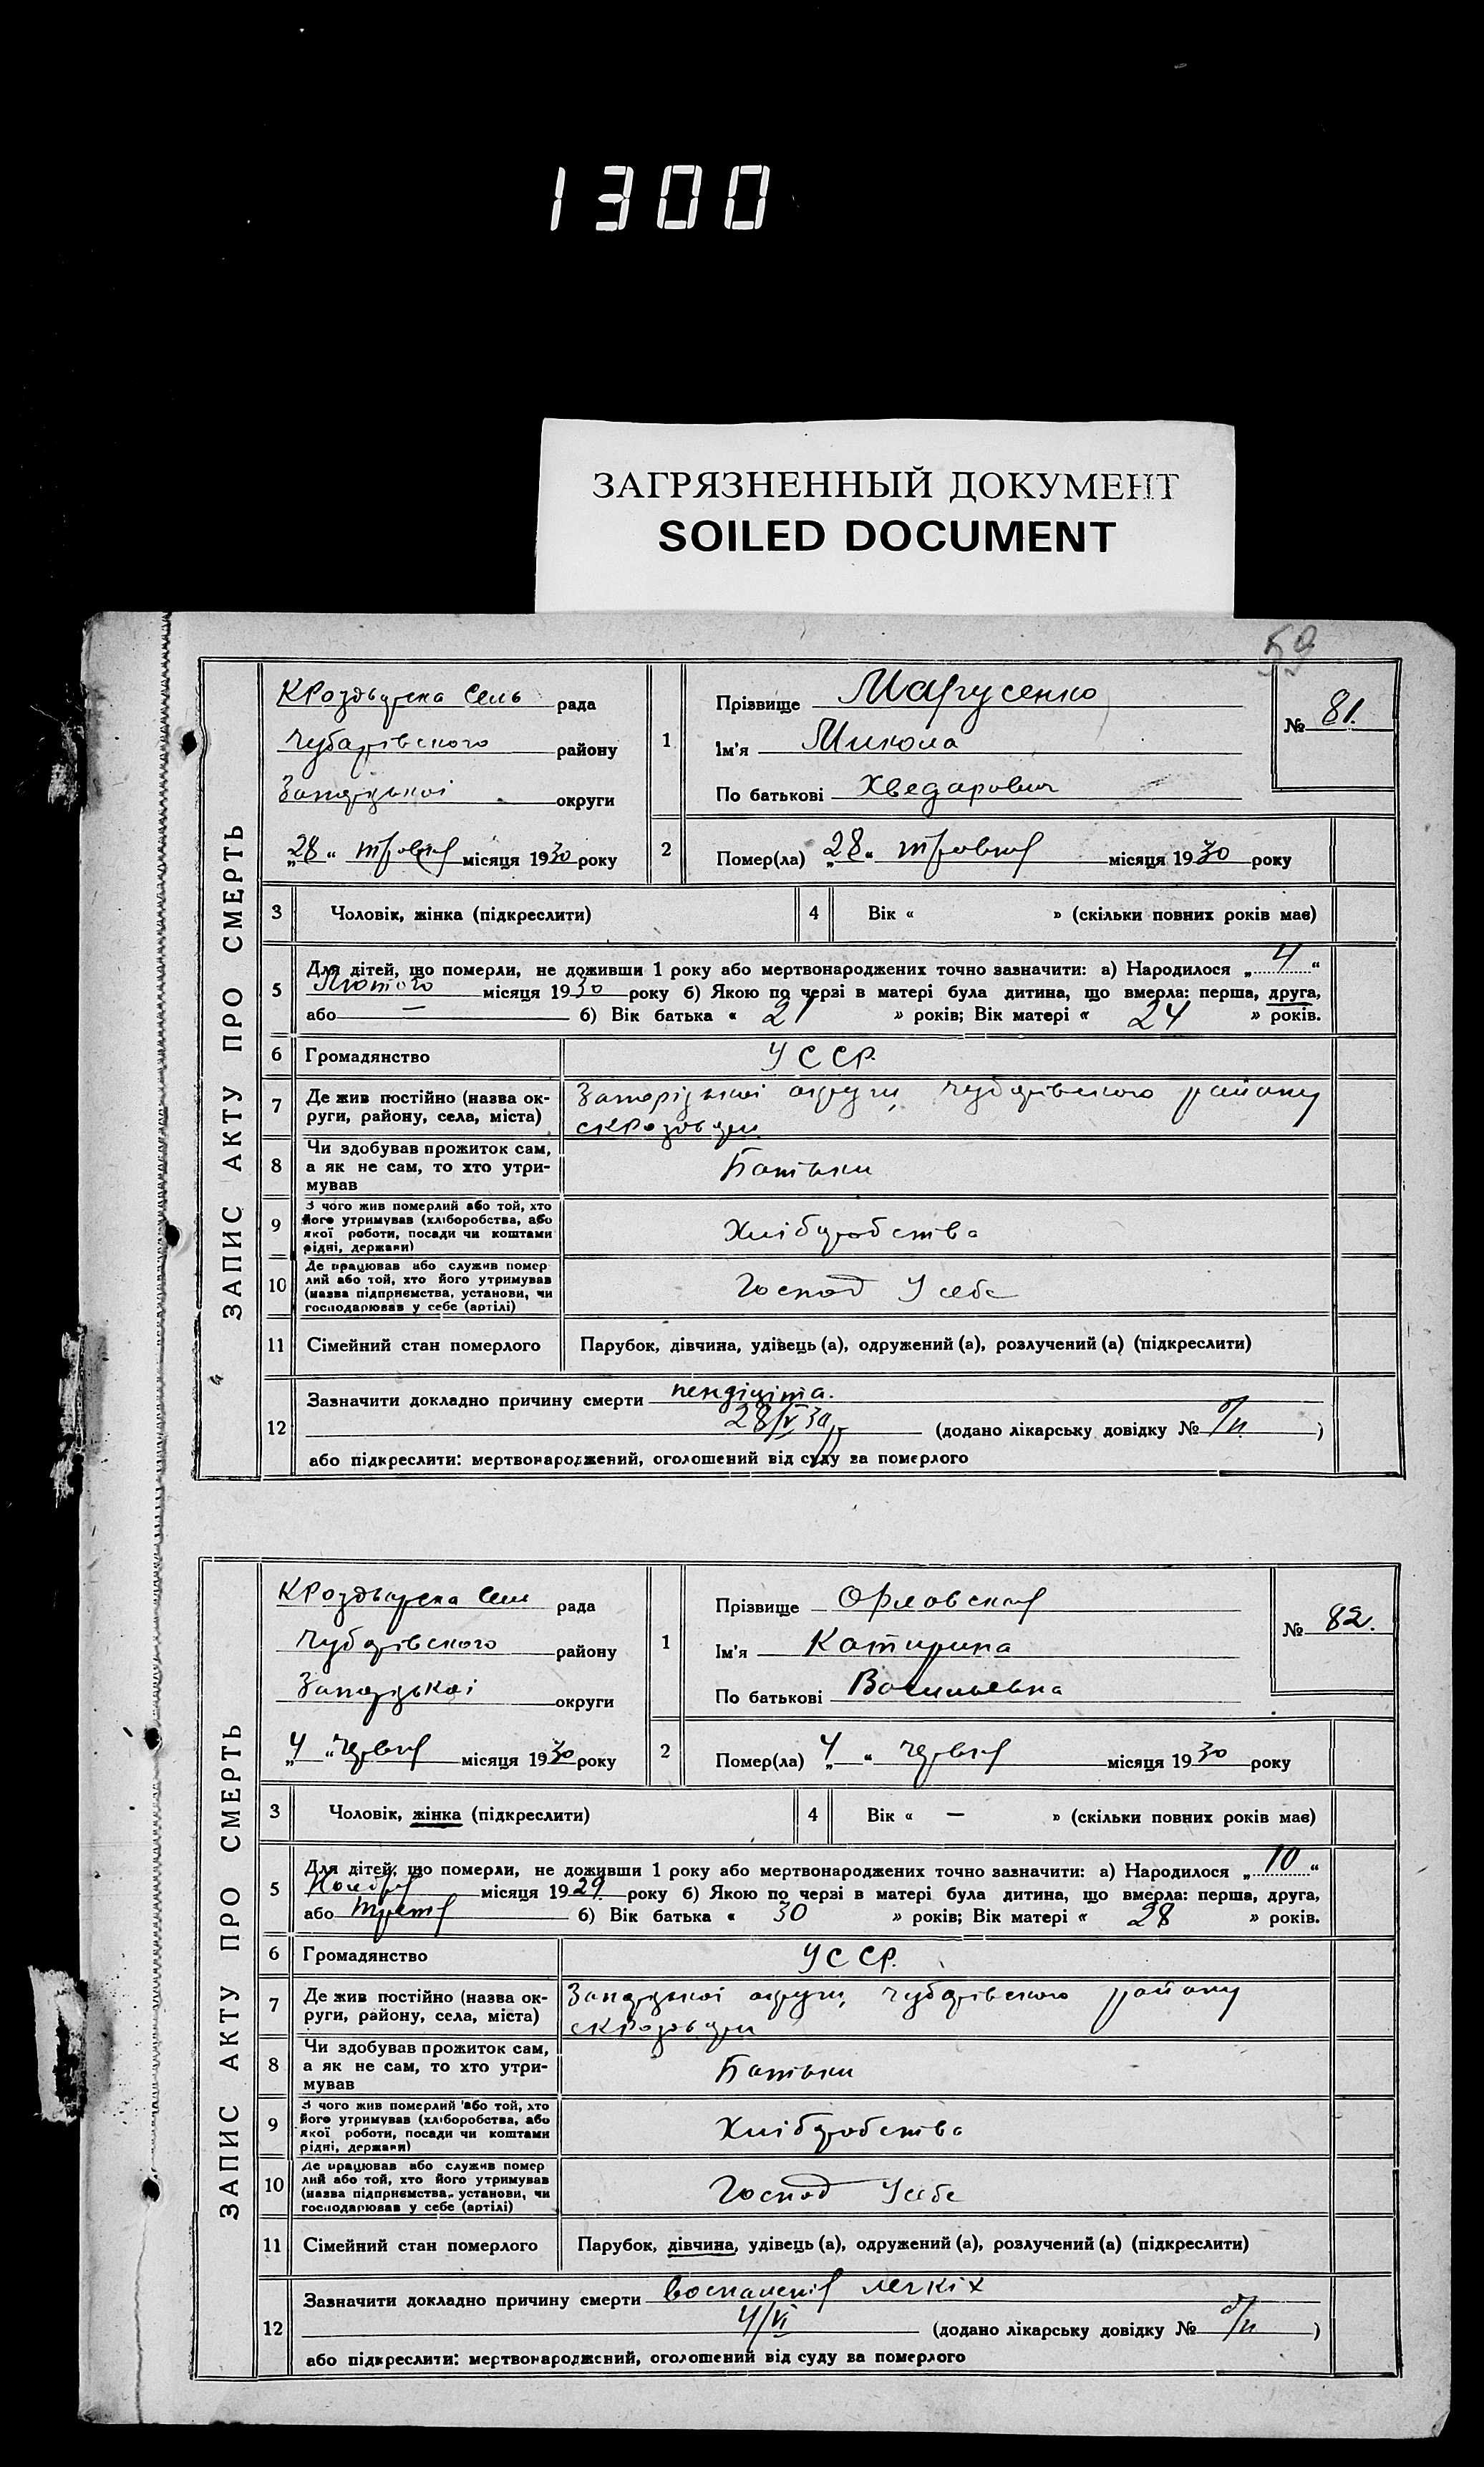 1300
ЗАГРЯЗНЕННЫЙ ДОКУМЕНТ
SOILED DOCUMENT
59
ЗАПИС АКТУ ПРО СМЕРТЬ
сель рада
Чубарівського району
Запорізькоі округи
„28“ травня місяця 1930 року
1
Прізвище Марусенко
Ім'я Микола
По батькові Хведарович
№ 81.
2
Помер(ла) „28“ травня місяця 1930 року
3 Чоловік, жінка (підкреслити)
4 Вік « » (скільки повних років має)
5 Для дітей, що померли, не доживши 1 року або мертвонароджених точно зазначити: а) Народилося „4“
Лютого місяця 1930 року б) Якою по черзі в матері була дитина, що вмерла: перша, друга,
або — б) Вік батька « 21 » років; Вік матері « 24 » років.
6 Громадянство УССР.
7 Де жив постійно (назва округи, району, села, міста)
Запорізькоі округи, Чубарівського району
8 Чи здобував прожиток сам,
а як не сам, то хто утри-
мував
Батьки
9 З чого жив померлий або той, хто
його утримував (хліборобства, або
якої роботи, посади чи коштами
рідні, держави)
Хліборобства
10 Де працював або служив помер
лий або той, хто його утримував
(назва підприємства, установи, чи
господарював у себе (артілі)
Господ У себе
11 Сімейний стан померлого Парубок, дівчина, удівець (а), одружений (а), розлучений (а) (підкреслити)
12 Зазначити докладно причину смерти
28/V 30 (додано лікарську довідку № б/н )
або підкреслити: мертвонароджений, оголошений від суду за померлого
ЗАПИС АКТУ ПРО СМЕРТЬ
рада
Чубарівського району
Запорізькоі округи
„4“ червня місяця 1930 року
1
Прізвище Орловская
Ім'я Катирина
По батькові Васильевна
№ 82.
2
Помер(ла) „4“ червня місяця 1930 року
3 Чоловік, жінка (підкреслити)
4 Вік « — » (скільки повних років має)
5 Для дітей, що померли, не доживши 1 року або мертвонароджених точно зазначити: а) Народилося „10“
Ноября місяця 1929 року б) Якою по черзі в матері була дитина, що вмерла: перша, друга,
або третя б) Вік батька « 30 » років; Вік матері « 28 » років.
6 Громадянство УССР.
7 Де жив постійно (назва округи, району, села, міста)
Запорізькоі округи, Чубарівського району
8 Чи здобував прожиток сам,
а як не сам, то хто утри-
мував
Батьки
9 З чого жив померлий або той, хто
його утримував (хліборобства, або
якої роботи, посади чи коштами
рідні, держави)
Хліборобства
10 Де працював або служив помер
лий або той, хто його утримував
(назва підприємства, установи, чи
господарював у себе (артілі)
Господ У себе
11 Сімейний стан померлого Парубок, дівчина, удівець (а), одружений (а), розлучений (а) (підкреслити)
12 Зазначити докладно причину смерти воспаленія легкіх
4/VI (додано лікарську довідку № б/н )
або підкреслити: мертвонароджений, оголошений від суду за померлого